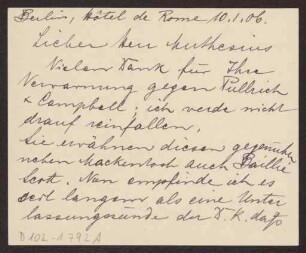 Berlin, Hôtel de Rome 10.1.06.
Lieber Herr Muthesius
Vielen Dank für Ihre
Verwarnung gegen Pullrich
& Campbell; ich werde nicht
drauf reinfallen.
Sie erwähnen diesen gegenüber
Mackintosh auch Baillie
Scott. Nun empfinde ich es
seit langem als eine Unter
lassungssünde der D. K. daß
D 102-1792A